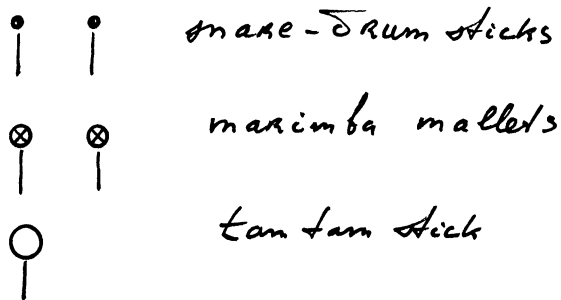 snare-drum sticks
marimba mallets
tam tam stick